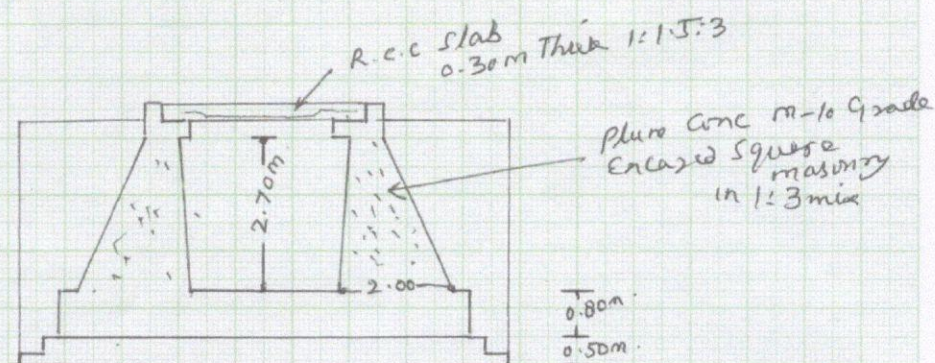 R.c.c Slab
0.30m Thick 1:1.5:3
Plum Conc M-10 Grade
Encazed Square
masonry
in 1:3 mix
2.70m
2.00
0.80m.
0.50m.